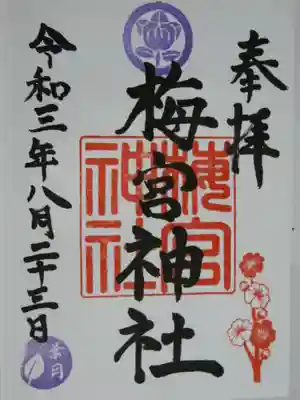 奉拝
梅宮神社
梅宮神社
令和三年八月二十三日
葉月